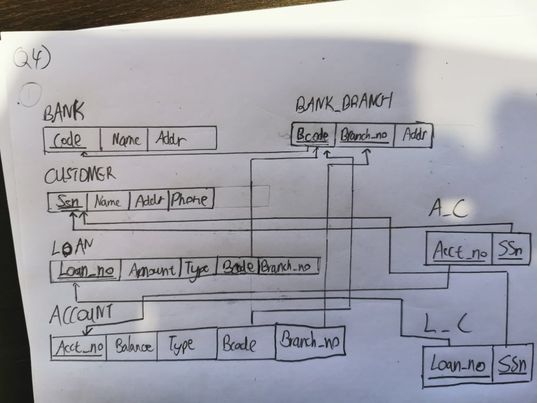 Q4)
1
BANK
Code Name Addr
BANK_BRANCH
Bcode Branch_no Addr
CUSTOMER
Ssn Name Addr Phone
A_C
Acct_no SSn
LOAN
Loan_no Amount Type Bcode Branch_no
ACCOUNT
Acct_no Balance Type Bcode Branch_no
L_C
Loan_no SSn